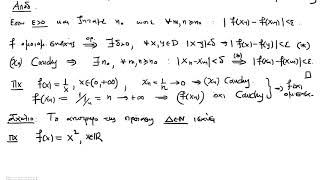 Απόδ.
Έστω ε>0 και ζητάμε n₀ ώστε ∀ n,m ≥ n₀ : |f(xₙ) - f(xₘ)| < ε.
f ομοιόμ. συνεχής ⇒ ∃ δ>0, ∀ x,y∈D |x-y|<δ → |f(x)-f(y)| < ε (*)
(xₙ) Cauchy ⇒ ∃ n₀, ∀ n,m ≥ n₀ : |xₙ-xₘ| < δ ⇒ |f(xₙ)-f(xₘ)| < ε.
Πχ f(x) = 1/x, x∈(0,+∞), xₙ = 1/n → 0 → (xₙ) Cauchy.
f(xₙ) = 1/1/n = n → +∞ → (f(xₙ)) όχι Cauchy
Σχόλιο: Το αντίστροφο της πρότασης ΔΕΝ ισχύει
Πχ f(x) = x², x∈ℝ